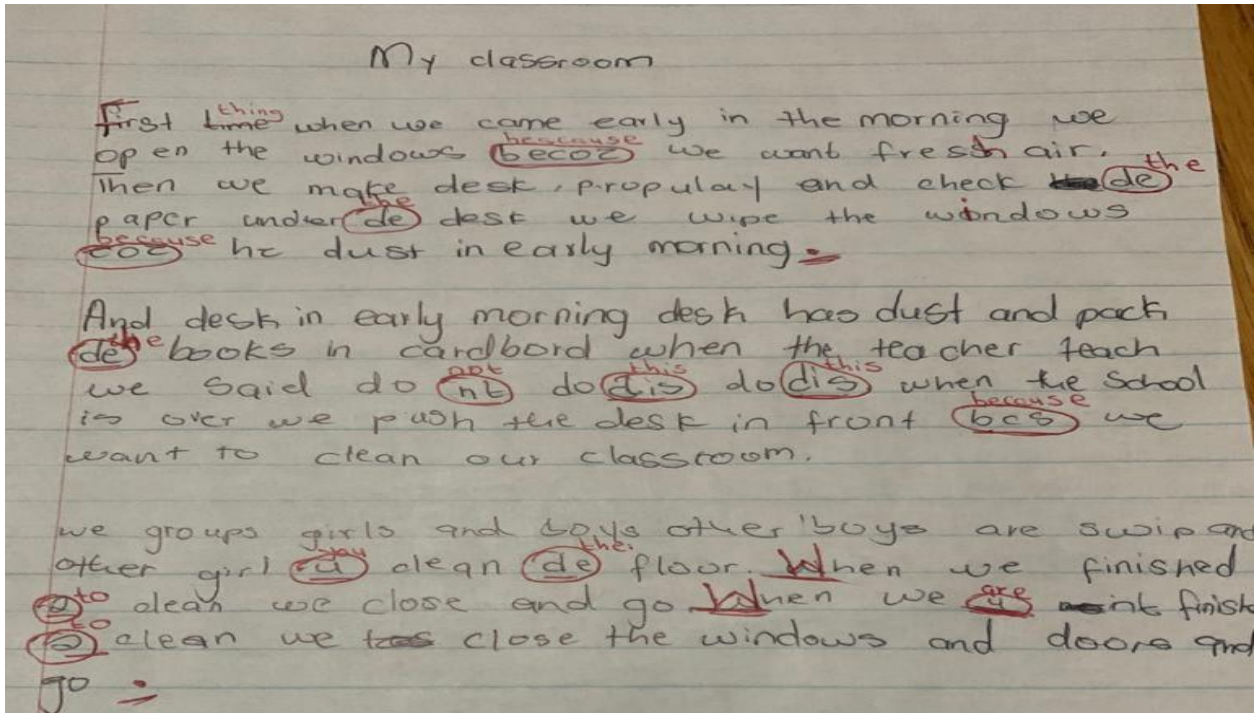 My classroom
thing
First time when we came early in the morning we
beacause
open the windows becoz we want fresh air.
the
Then we make desk, propulay and check de
the
paper under de desk we wipe the windows
because
coz he dust in early morning.
And desk in early morning desk has dust and pack
the
de books in cardbord when the teacher teach
not this this
we said do nt do dis do dis when the school
because
is over we push the desk in front bcs we
want to clean our classroom.
we groups girls and boys other boys are swip and
you the
other girl u clean de floor. When we finished
to are
2 clean we close and go When we u nt finish
to
2 clean we close the windows and doors and
go.